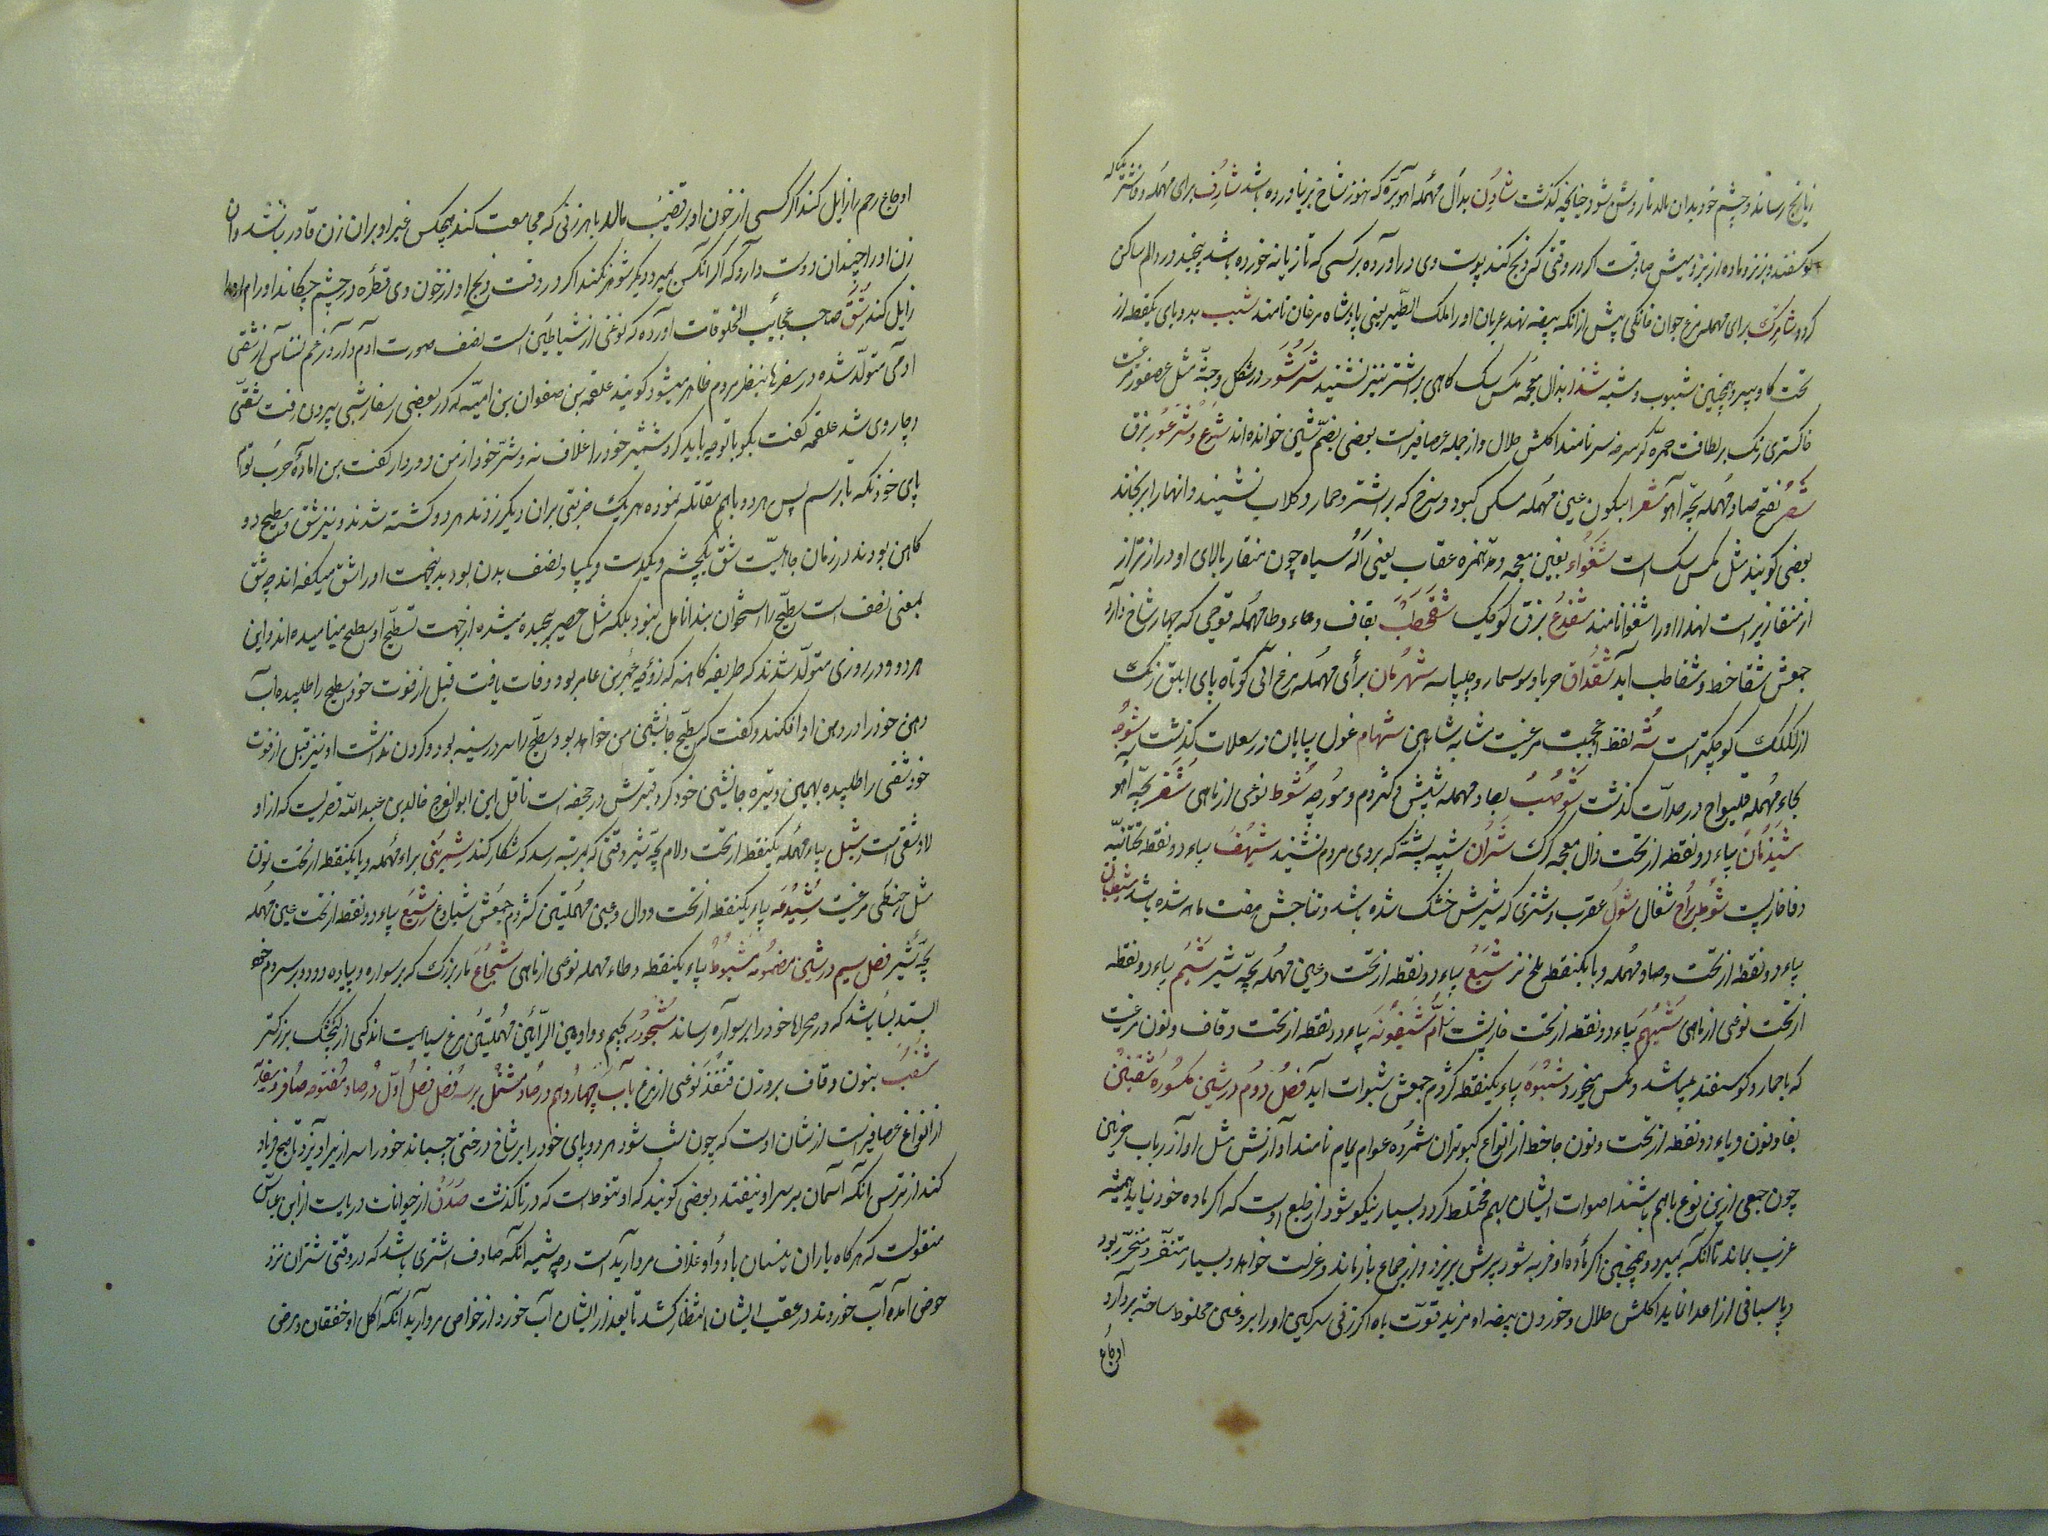 زیانی نرساند و چشم خود بدان مالد تا روشن شود چنانچه گذشت شادن بدال مهمله آهو بره که هنوز شاخ بر نیاورده باشد شارف برای مهمله و فا شتر
گوسفند و بز نر و ماده از بز و میش صادقست اگر در وقتی که ذبح کنند پوست وی در آورده بر کسی که تازیانه خورده باشد پیچید درد الم ساکن
گردد شامرک برای مهمله مرغ جوان خانگی پیش از آنکه بیضه نهد عربان او را ملک الطیر یعنی پادشاه مرغان نامند شبب بدو بای یکنقطه از
تحت گاو پیر و همچنین شبوب و مشبه شذا بذال معجمه مگس سگ گاهی بر اشتر نیز نشیند شرشور در شکل و جثه مثل عصفور مرغیست
خاکستری رنگ بر لطافت حمره گر سرخه سر نامند اکلش حلال و از جمله عصافیر است بعضی بضم شین خوانده اند شرغ و شرعوز بزق
شصر بفتح صاد مهمله بچه آهو شعرا بسکون عین مهمله مگس کبود و سرخ که بر اشتر و حمار و کلاب نشیند و انها را برنجاند
بعضی گویند مثل مگس سگ است شغواء بغین معجمه و مد همزه عقاب یعنی آله سیاه چون منقار بالای او دراز تر از
از منقار زیر است لهذا او را شغوا نامند شفدع بزق کوچک شقحطب بقاف و حاء و طا مهمله قوچی که چهار شاخ دارد
جمعش شقاحط و شقاطب آید شقذاق حربا و سوسمار و چلپاسه شهرمان برای مهمله مرغ آبی کوتاه پای ابلق رنگ
از لکلک کوچکتر است شه بلفظ عجیب مرغیست مشابه شاهین شهام غول بیابان در سعلات گذشت شوحه
بحاء مهمله قلیواج در حدات گذشت شوصب بصاد مهمله شپش و کژدم و مورچه شوط نوعی از ماهی شقر بچه آهو
شیذمان بیاء دو نقطه از تحت ذال معجمه گرگ شران شبیه پشه که بر روی مردم نشیند شیهف بیاء دو نقطه تحتانیه
و فا خارپشت شوط براح شغال شول عقرب و شتری که شیرش خشک شده باشد و نتاجش هفت ماهه شده باشد
بیاء دو نقطه از تحت و صاد مهمله و با یکنقطه ملخ نر شیع بیاء دو نقطه از تحت و عین مهمله بچه شیر شیم بیاء دو نقطه
از تحت نوعی از ماهی شیهم بیاء دو نقطه از تحت خارپشت شیقونه بیاء دو نقطه از تحت و قاف و نون مرغیست
که با حمار و گوسفند میباشد و مگس میخورد شبوه بباء یکنقطه کژدم جمعش شبوات آید فصل دوم در شین مکسوره شقنین
بفا و نون و یاء دو نقطه از تحت و نون جاحظ از انواع کبوتران شمرده عوام یمام نامند آوازش مثل آواز رباب حزین
چون جمعی ازین نوع باهم باشند اصوات ایشان بهم مختلط گردد بسیار نیکو شود از طبع اوست که اگر ماده خود نیابد همیشه
عزب بماند تا آنکه بمیرد و همچنین اگر ماده او فربه شود پرش بریزد و از جماع باز ماند و عزلت خواهد و بسیار متنفر و متحرز بود
و پاسبانی از اعدا نماید اکلش حلال و خوردن بیضه او مزید قوت باه اگر زنی سرگین او را بروغنی مخلوط ساخته بردارد
اوجاع
اوجاع رحم را زایل کند اگر کسی از خون او بر قضیب مالد با هر زنی که مجامعت کند هیچکس غیر او بر آن زن قادر نباشد و آن
زن او را چندان دوست دارد که اگر آنکس بمیرد دیگر شوهر نکند اگر در وقت ذبح او از خون وی قطره در چشم چکاند اورام او را
زایل کند شق صاحب عجائب المخلوقات آورده که نوعی از شیاطین است نصف صورت آدم دارد و زعم نسناس از شقی
آدمی متولد شده در سفرها بنظر مردم ظاهر میشود گویند علقمه بن صفوان بن امیه که در بعضی اسفار شبی بیرون رفت شقی
دچار وی شد علقمه گفت بگو با تو چه باید کرد شمشیر خود را غلاف نه و شر خود از من دور دار گفت من آماده حرب توام
پای خود نگه تا برسم پس هر دو باهم مقاتله نموده هر یک ضربتی بر آن دیگر زدند هر دو کشته شدند و نیز شق و سطیح دو
کاهن بودند در زمان جاهلیت شق یکچشم و یکدست و یکپا و نصف بدن بود بدینجهت او را شق میگفته اند چه شق
بمعنی نصف است سطیح را استخوان بند انامل نبود بلکه مثل حصیر پیچیده میشده از جهت تسطیح او سطیح مینامیده اند و این
هر دو در روزی متولد شدند که طریفه کاهنه که زوجه عمرو بن عامر بود وفات یافت قبل از فوت خود سطیح را طلبیده آب
دهن خود را در دهن او افکند و گفت که سطیح جانشین من خواهد بود و سطیح را سر در سینه بود و گردن نداشت او نیز قبل از فوت
خود شقی را طلبیده بهمین وتیره جانشین خود کرد قبرش در جحفه است ناقل این ابو الفرج خالد بن عبد الله قصریست که از او
لاد شقی است شبل بباء مهمله یکنقطه از تحت و لام بچه شیر وقتی که بمرتبه رسد که شکار کند شیرینی براء مهمله و با یکنقطه از تحت نون
مثل حنظی مرغیست شبدعه بباء یکنقطه از تحت و دال و عین مهملتین کژدم جمعش شبادع شیع بیاء دو نقطه از تحت عین مهمله
بچه شیر فصل سیم در شین مضمومه شبوط بباء یکنقطه و طاء مهمله نوعی از ماهی شجاع مار بزرگ که بر سواره و پیاده دود و بر سر دم خود
ایستد بسا باشد که در صحراها خود را بر سواره رساند شحرور بجیم و واو بین الرائین مهملتین مرغ سیاهیست اندکی از گنجشک بزرگتر
شنقب بنون و قاف بر وزن قنفذ نوعی از مرغ باب چهاردهم در صاد مشتمل بر سه فصل فصل اول در صاد مفتوحه صافر
از انواع عصافیر است از شان اوست که چون شب شود هر دو پای خود را بر شاخ درختی چسباند خود را سرازیر آویزد تا صبح فریاد
کند از ترس آنکه آسمان بر سر او نیفتد و بعضی گویند که او تنوط است که در تا گذشت صدف از حیوانات دریاست از ابن عباس
منقولست که هرگاه باران نیسان بارد او غلاف مروارید است وجه تسمیه آنکه صادف اشتری باشد که در وقتی شتران نزد
حوض آمده آب خوردند در عقب ایشان انتظار کشد تا بعد از ایشان آب خورد از خواص مروارید آنکه اکل او خفقان و مرض